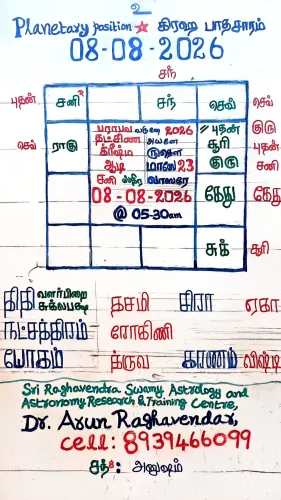 2
Planetary position ☆ கிரஹ பாதசாரம்
08-08-2026
சந்
புதன் சனி வ சந் செவ் செவ்
செவ் ராகு // புதன் சூரி குரு குரு புதன் சனி
பராபவ வருஷ 2026
தட்சிண அயனே
க்ரீஷ்ம ருதௌ
ஆடி மாஸே 23
சனி ஸ்திர வாஸரே
08-08-2026
@ 05-30am
கேது கேது
சுக் சூரி
திதி வளர்பிறை சுக்லபக்ஷ தசமி கிரா ஏகா
நட்சத்திரம் ரோகிணி
யோகம் த்ருவ கரணம் விஷ்டி
Sri Raghavendra Swamy Astrology and
Astronomy Research & Training Centre,
Dr. Arun Raghavendar,
cell: 8939466099
சந் 8: அனுஷம்